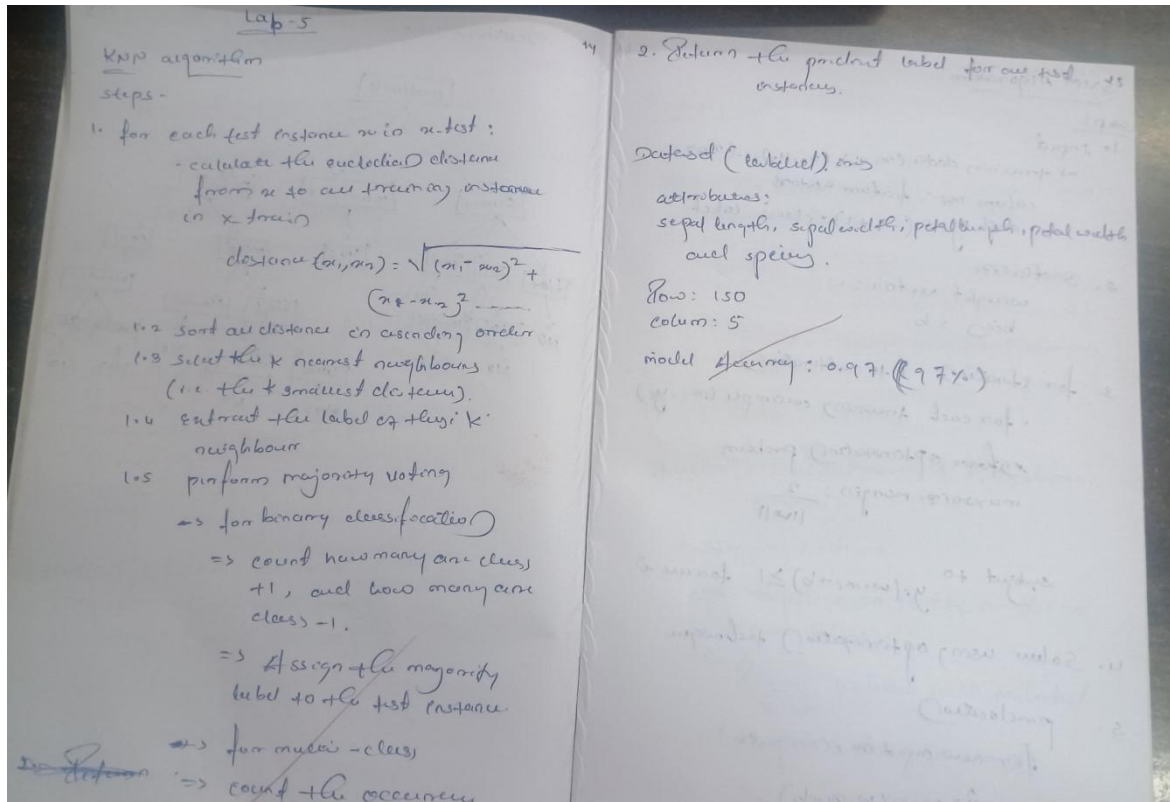 Lab-5
KNN algorithm
steps-
1. for each test instance x in x-test:
- calulate the eucledian distane
from x to all training instance
in x train
distance (x1, x2) = √(x1 - x2)² +
(x2 - x2)² ......
1.2 sort all distance in ascending order
1.3 select the k nearest neighbours
(i.e. the k smallest distens).
1.4 extract the label of thesi k
neighbour
1.5 perform majority voting
-> for binary classification
=> count how many are class
+1, and how many are
class -1.
=> Assign the magority
label to the test instance.
-> for multi-class
=> count the occurrence
14
2. Return the predict label for all test
instances.
15
Dataset (labelled) iris
attributes:
sepal length, sepal width, petal length, petal width
and species.
Row: 150
colum: 5
model Accuracy: 0.971 (97%)